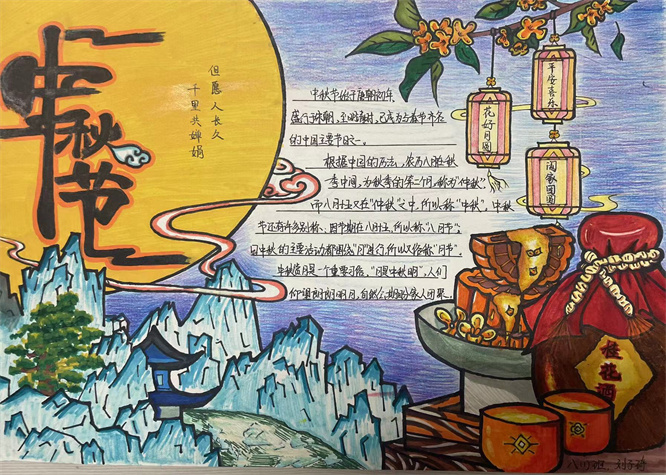 中秋节
但愿人长久
千里共婵娟
中秋节始于唐朝初年,
盛行于宋朝,至明清时,已成为与春节齐名
的中国主要节日之一。
根据中国的历法,农历八月在秋
季中间,为秋季的第二个月,称为“仲秋”,
而八月十五又在“仲秋”之中,所以称“中秋”。中秋
节还有许多别称,因节期在八月十五,所以称“八月节”;
因中秋的主要活动都围绕“月”进行,所以又俗称“月节”。
中秋赏月是一个重要习俗,“月是中秋明”,人们
仰望朗朗明月,自然会期盼家人团聚。
花好月圆
平安喜乐
阖家团圆
桂花酒